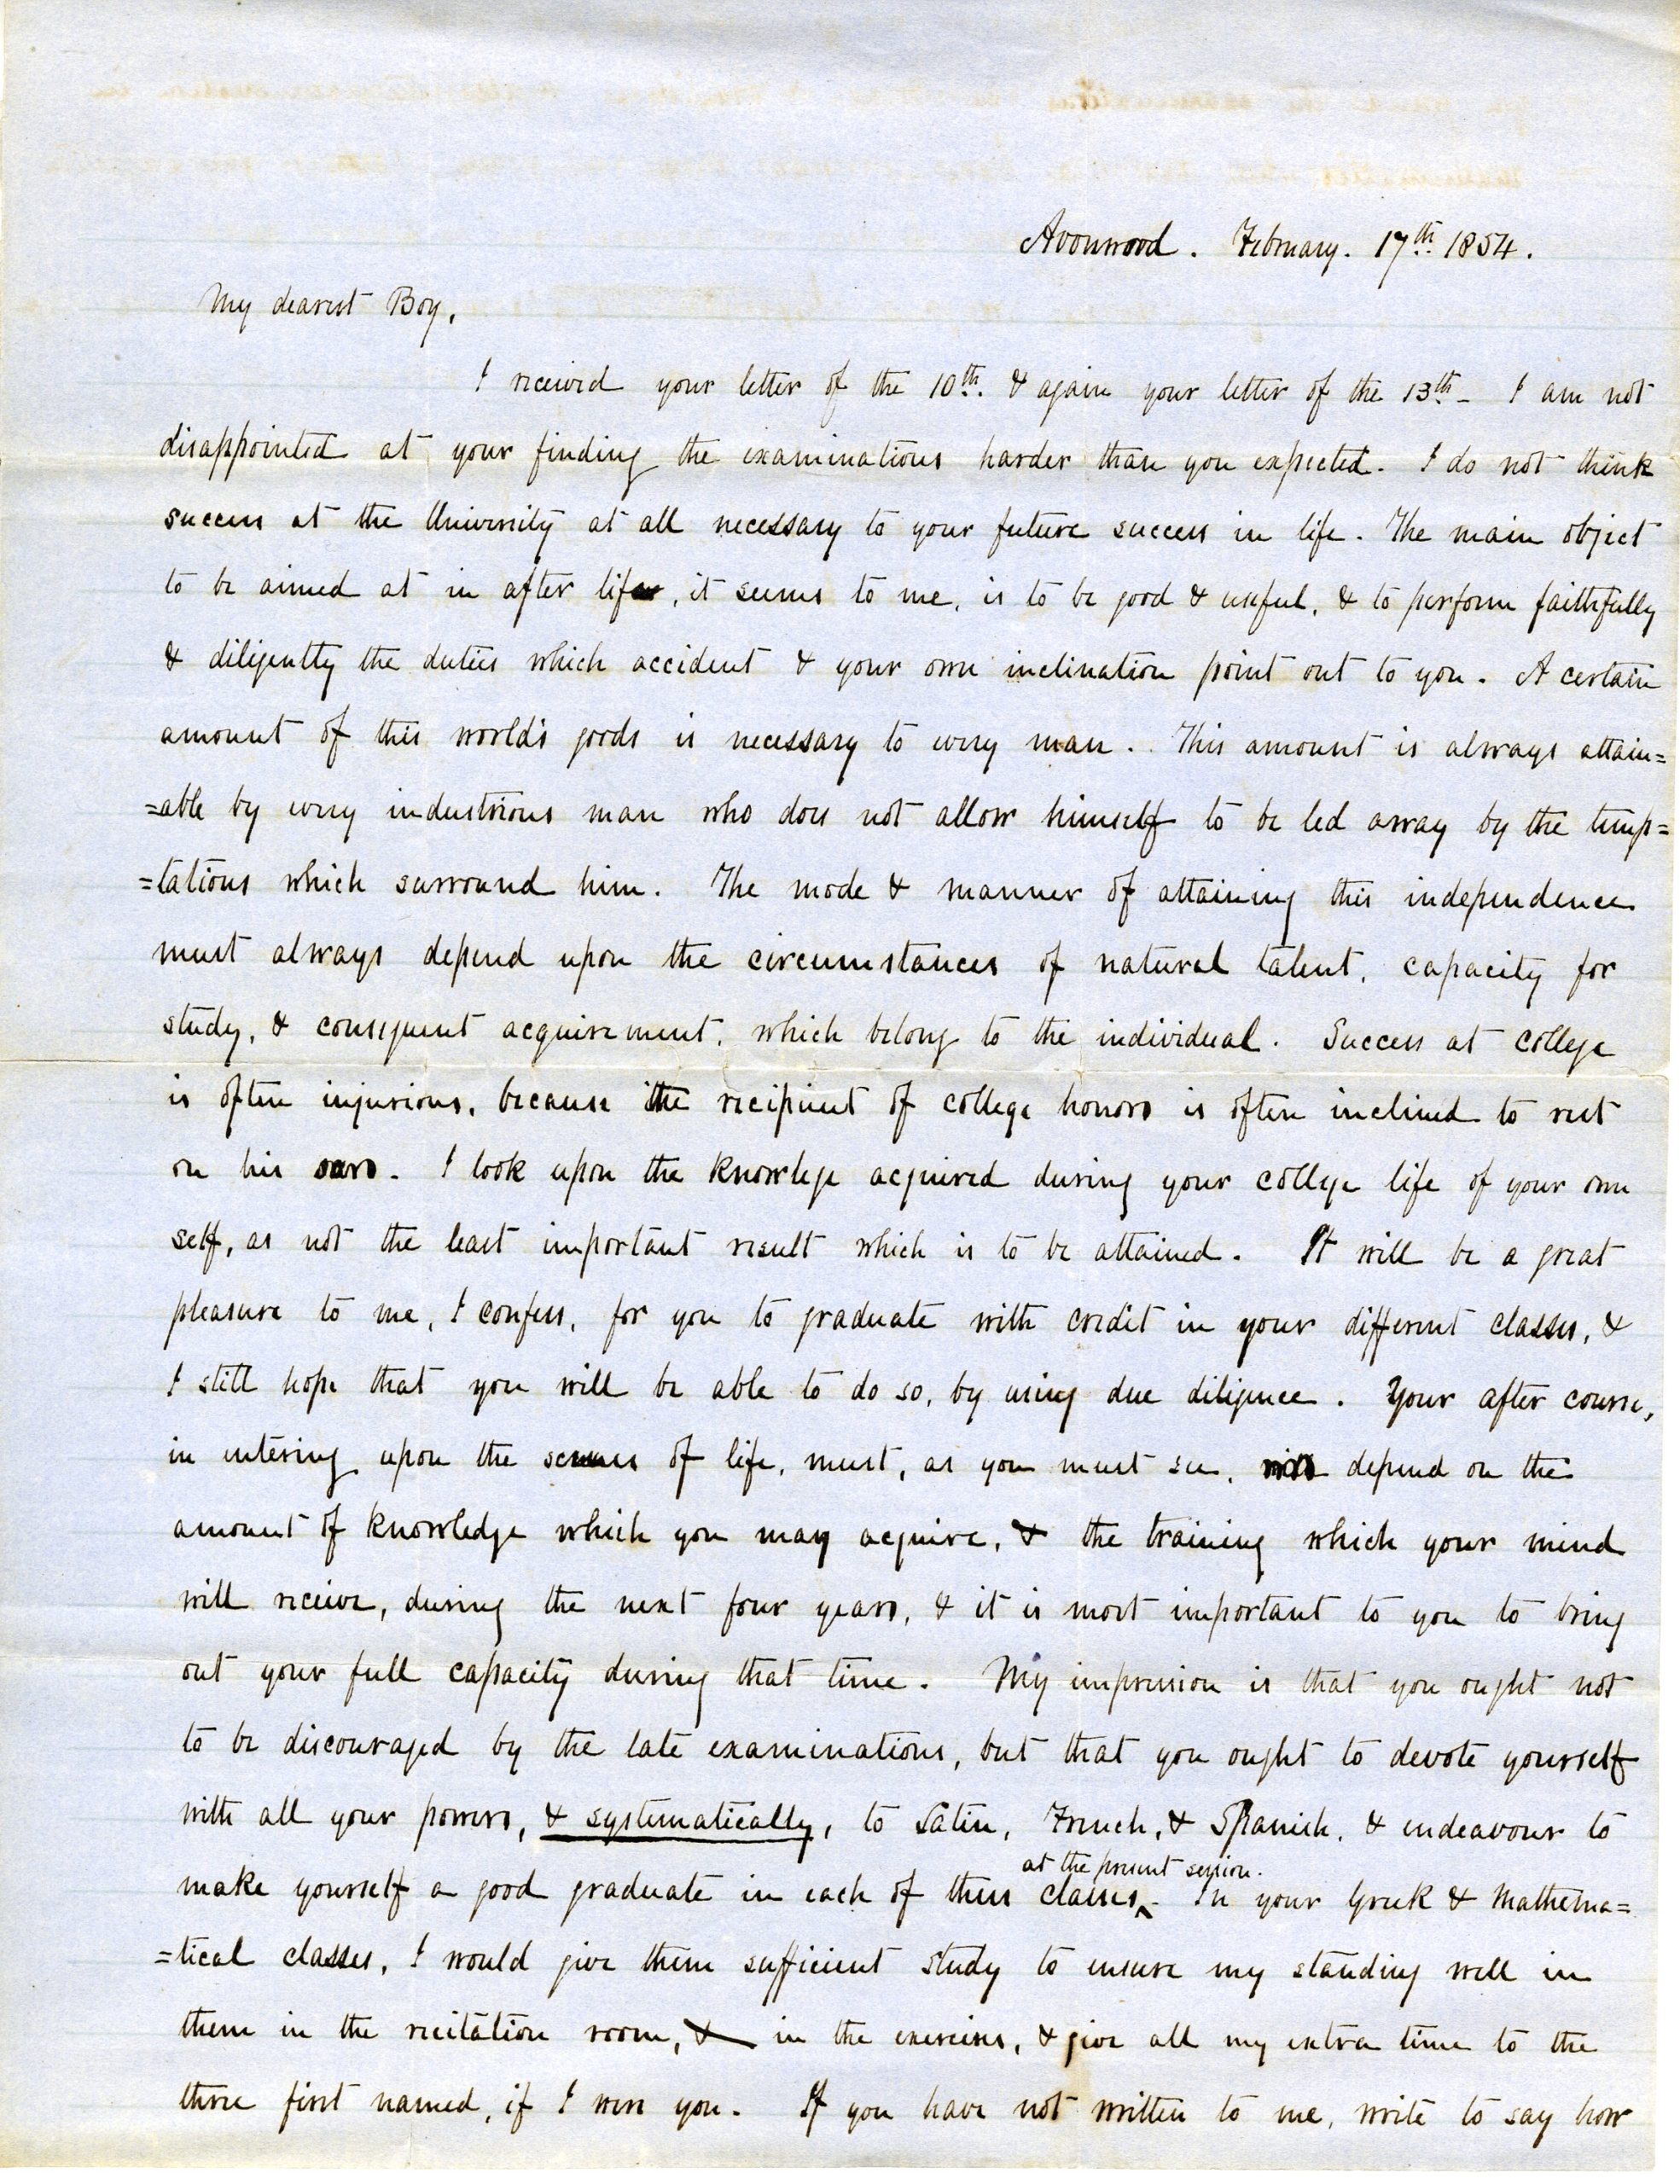 Avonwood. February. 17th 1854.
My dearest Boy,
I received your letter of the 10th. & again your letter of the 13th - I am not
disappointed at your finding the examinations harder than you expected. I do not think
success at the University at all necessary to your future success in life. The main object
to be aimed at in after life, it seems to me, is to be good & useful, & to perform faithfully
& diligently the duties which accident & your own inclination point out to you. A certain
amount of this world's goods is necessary to every man. This amount is always attain=
=able by every industrious man who does not allow himself to be led away by the temp=
=tations which surround him. The mode & manner of attaining this independence
must always depend upon the circumstances of natural talent, capacity for
study, & consequent acquirement, which belong to the individual. Success at college
is often injurious, because the recipient of college honors is often inclined to rest
on his oars. I look upon the knowlege acquired during your college life of your own
self, as not the least important result which is to be attained. It will be a great
pleasure to me, I confess, for you to graduate with credit in your different classes, &
I still hope that you will be able to do so, by using due diligence. Your after course,
in entering upon the scenes of life, must, as you must see, depend on the
amount of knowledge which you may acquire, & the training which your mind
will receive, during the next four years, & it is most important to you to bring
out your full capacity during that time. My impression is that you ought not
to be discouraged by the late examinations, but that you ought to devote yourself
with all your powers, & systematically, to Latin, French, & Spanish, & endeavour to
at the present session.
make yourself a good graduate in each of these classes^. In your Greek & Mathema=
=tical classes, I would give them sufficient study to ensure my standing well in
them in the recitation room, & in the exercises, & give all my extra time to the
three first named, if I were you. If you have not written to me, write to say how